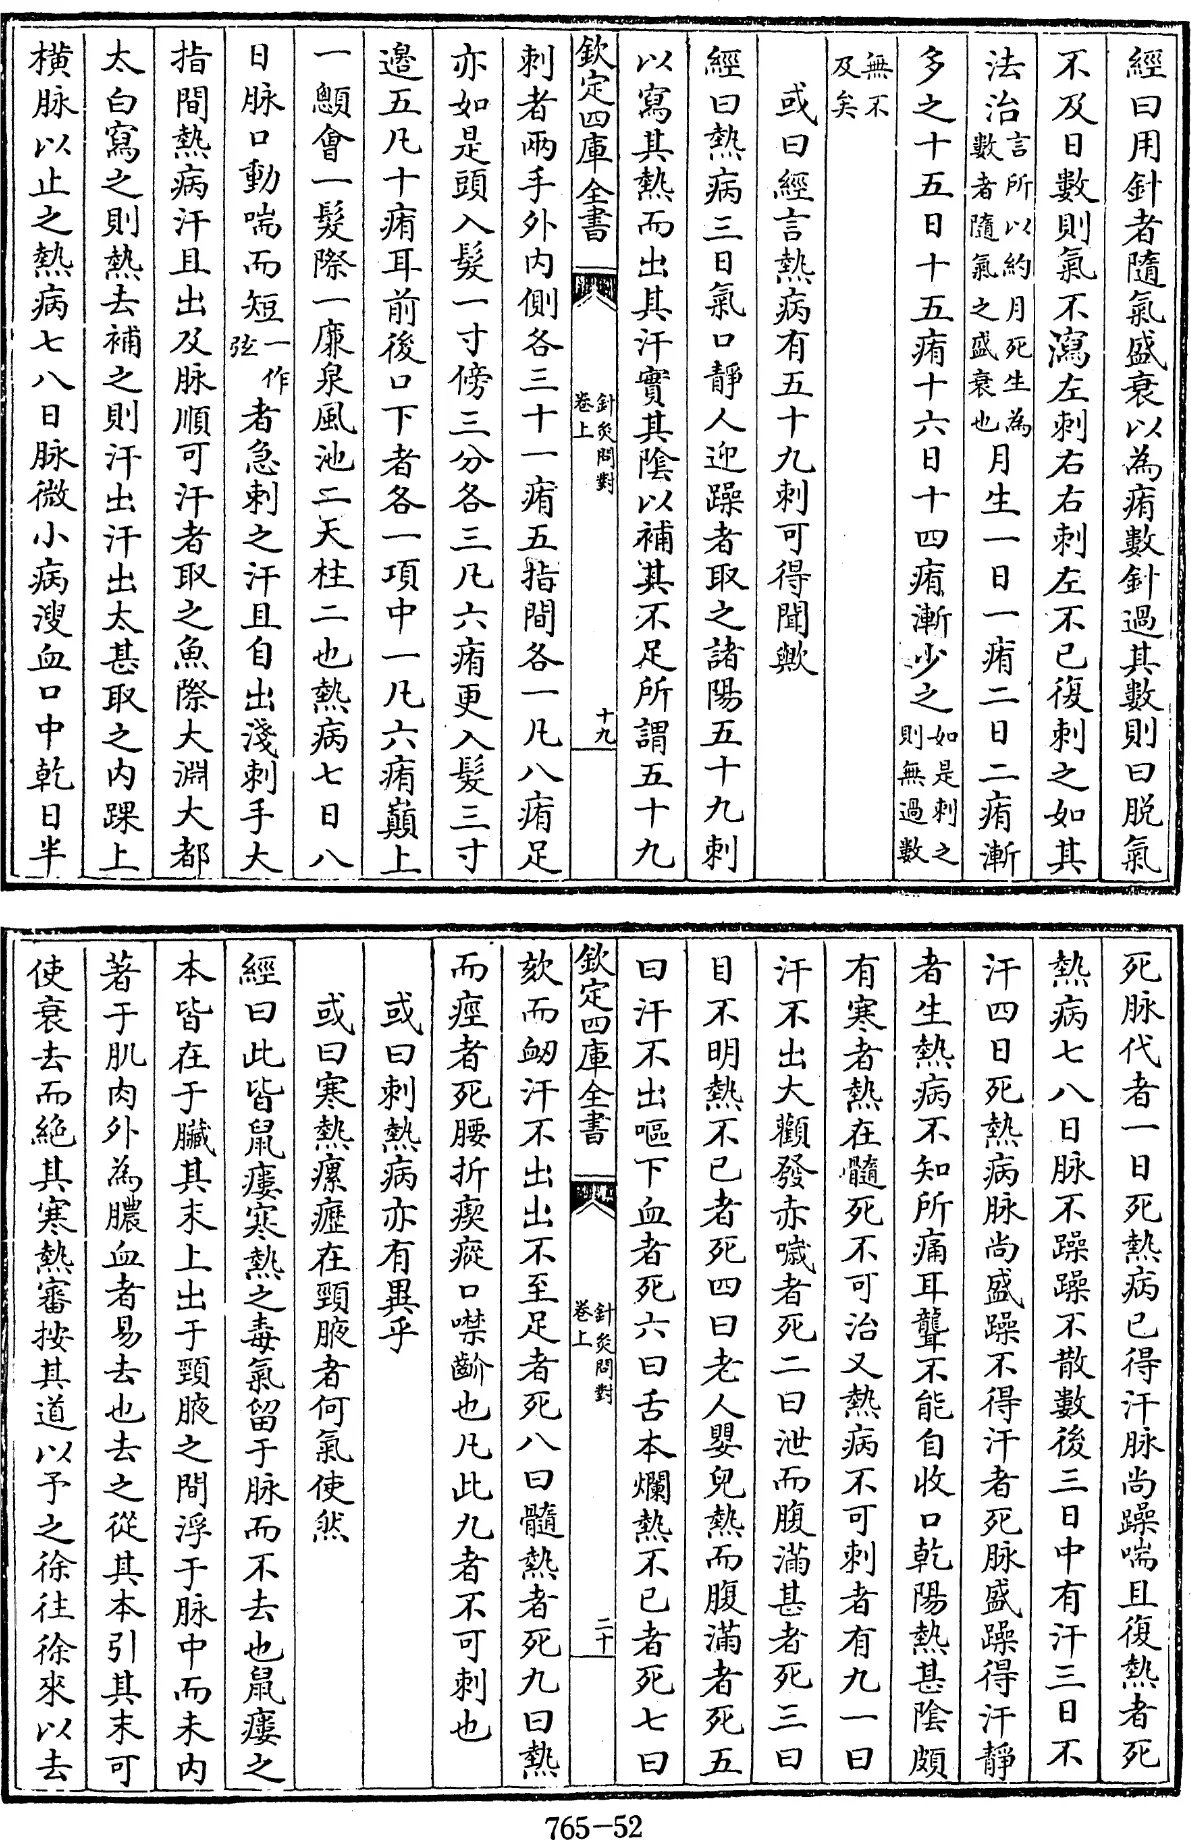 經曰用針者隨氣盛衰以為痏數針過其數則曰脱氣
不及日數則氣不瀉左刺右右刺左不已復刺之如其
法治言所以約月死生為數者隨氣之盛衰也月生一日一痏二日二痏漸
多之十五日十五痏十六日十四痏漸少之如是刺之則無過數
無不及矣
或曰經言熱病有五十九刺可得聞歟
經曰熱病三日氣口靜人迎躁者取之諸陽五十九刺
以寫其熱而出其汗實其陰以補其不足所謂五十九
欽定四庫全書 針灸問對卷上 十九
刺者兩手外内側各三十一痏五指間各一凡八痏足
亦如是頭入髮一寸傍三分各三凡六痏更入髮三寸
邉五凡十痏耳前後口下者各一項中一凡六痏巔上
一顖會一髮際一廉泉風池二天柱二也熱病七日八
日脉口動喘而短一作弦者急刺之汗且自出淺刺手大
指間熱病汗且出及脉順可汗者取之魚際大淵大都
太白寫之則熱去補之則汗出汗出太甚取之内踝上
橫脉以止之熱病七八日脉微小病溲血口中乾日半
死脉代者一日死熱病已得汗脉尚躁喘且復熱者死
熱病七八日脉不躁躁不散數後三日中有汗三日不
汗四日死熱病脉尚盛躁不得汗者死脉盛躁得汗靜
者生熱病不知所痛耳聾不能自收口乾陽熱甚陰頗
有寒者熱在髓死不可治又熱病不可刺者有九一曰
汗不出大顴發赤噦者死二曰泄而腹滿甚者死三曰
目不明熱不已者死四曰老人嬰兒熱而腹滿者死五
曰汗不出嘔下血者死六曰舌本爛熱不已者死七曰
欽定四庫全書 針灸問對卷上 二十
欬而衂汗不出出不至足者死八曰髓熱者死九曰熱
而痙者死腰折瘈瘲口噤齘也凡此九者不可刺也
或曰刺熱病亦有異乎
或曰寒熱瘰癧在頸腋者何氣使然
經曰此皆鼠瘻寒熱之毒氣留于脉而不去也鼠瘻之
本皆在于臟其末上出于頸腋之間浮于脉中而未内
著于肌肉外為膿血者易去也去之從其本引其末可
使衰去而絶其寒熱審按其道以予之徐往徐來以去
765-52